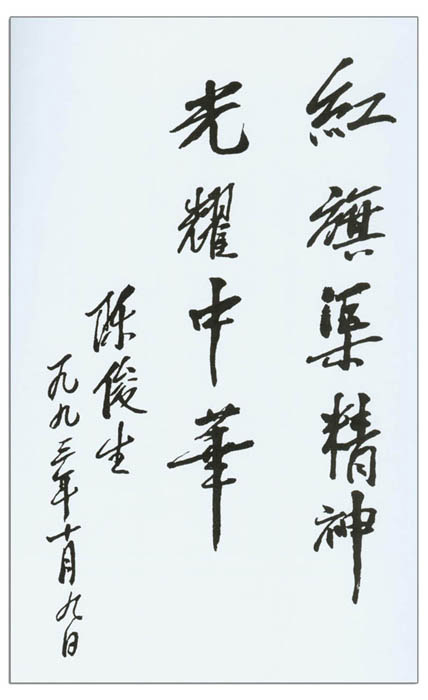 紅旗渠精神
光耀中華
陈俊生
一九九三年十月九日